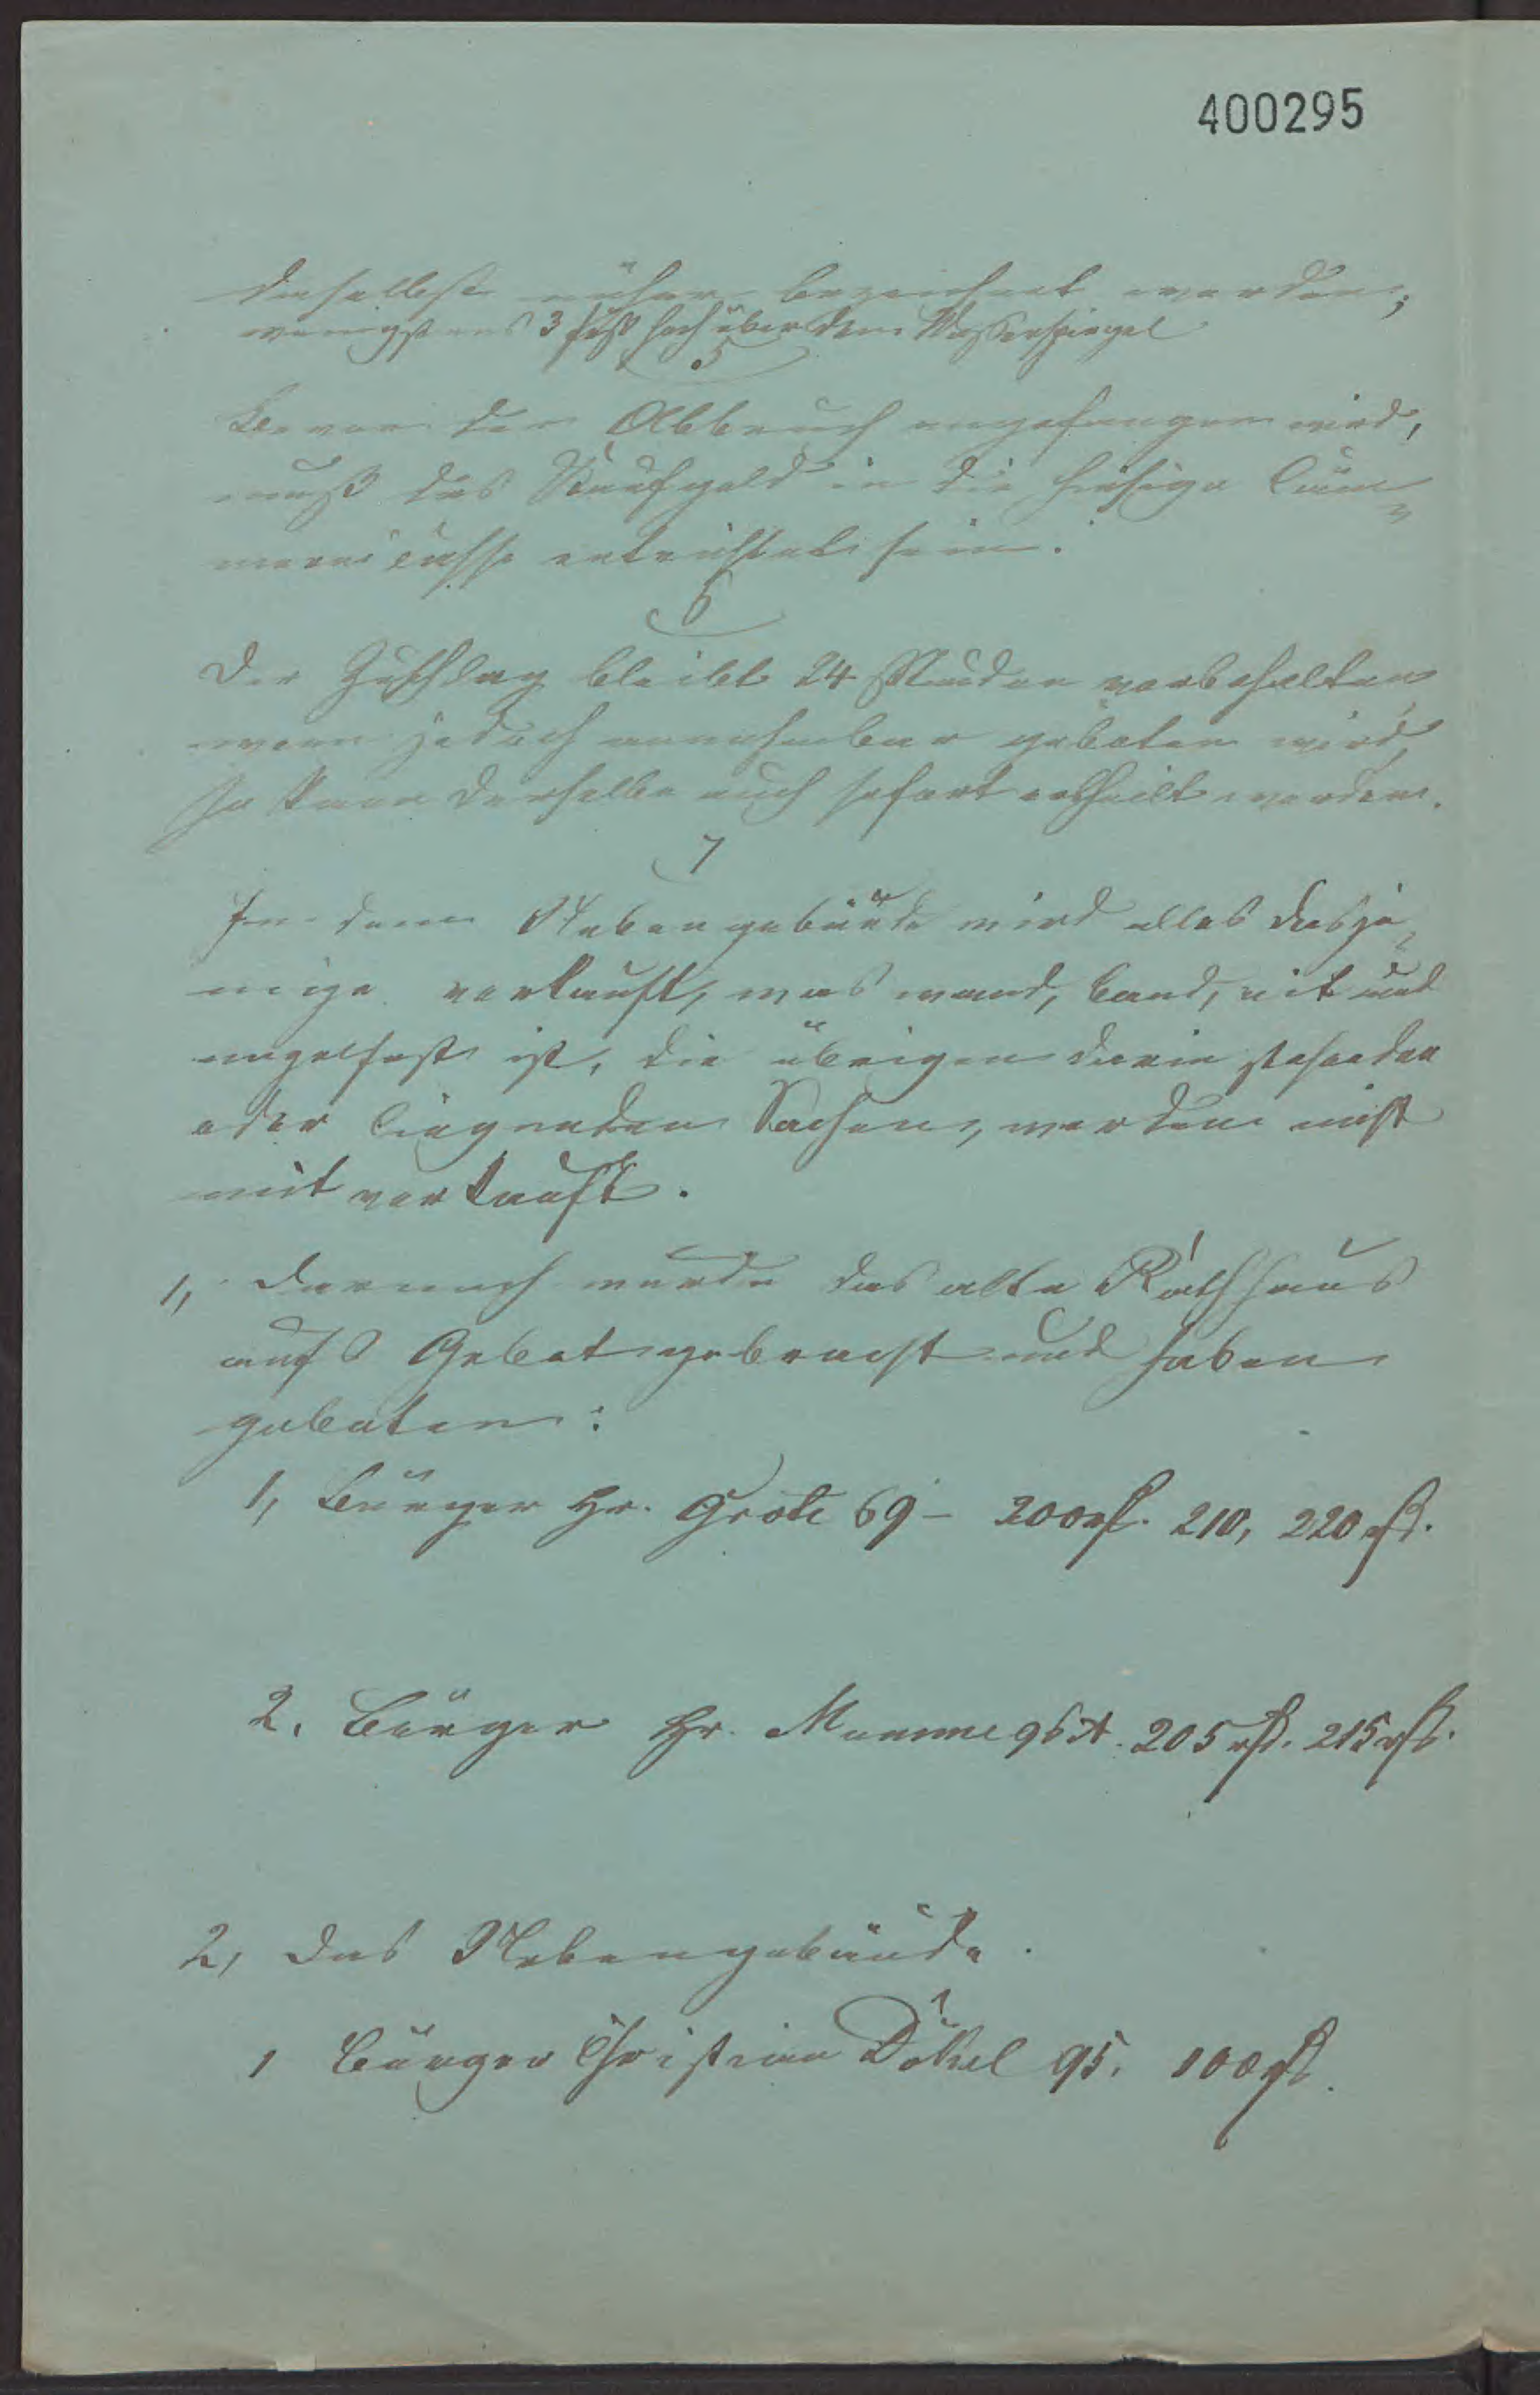 400295
daselbst näher bezeichnet werden,
wenigstens 3 fuß hoch über dem Wasserspiegel
5
Bevor der Abbruch angefangen wird,
muß das Kaufgeld in die hiesige Cäm-
mereicasse entrichtet sein.
6
Der Zuschlag bleibt 24 Stunden vorbehalten,
wenn jedoch annehmbar geboten wird,
so kann derselbe auch sofort ertheilt werden.
7
In dem Nebengebäude wird alles dasje-
nige verkauft, was wand, band, niet und
nagelfest ist, die übrigen darin stehenden
oder liegenden Sachen, werden nicht
mit verkauft.
1, Darnach wurde das alte Rathhaus
aufs Gebot gebracht und haben
geboten:
1, Bürger Hr. Grote 69 - 200 rth. 210, 220 rth.
2. Bürger Hr. Mumme 96 A. 205 rth. 215 rth.
2, Das Nebengebäude.
1 Bürger Christian Dökel 95. 100 rth.